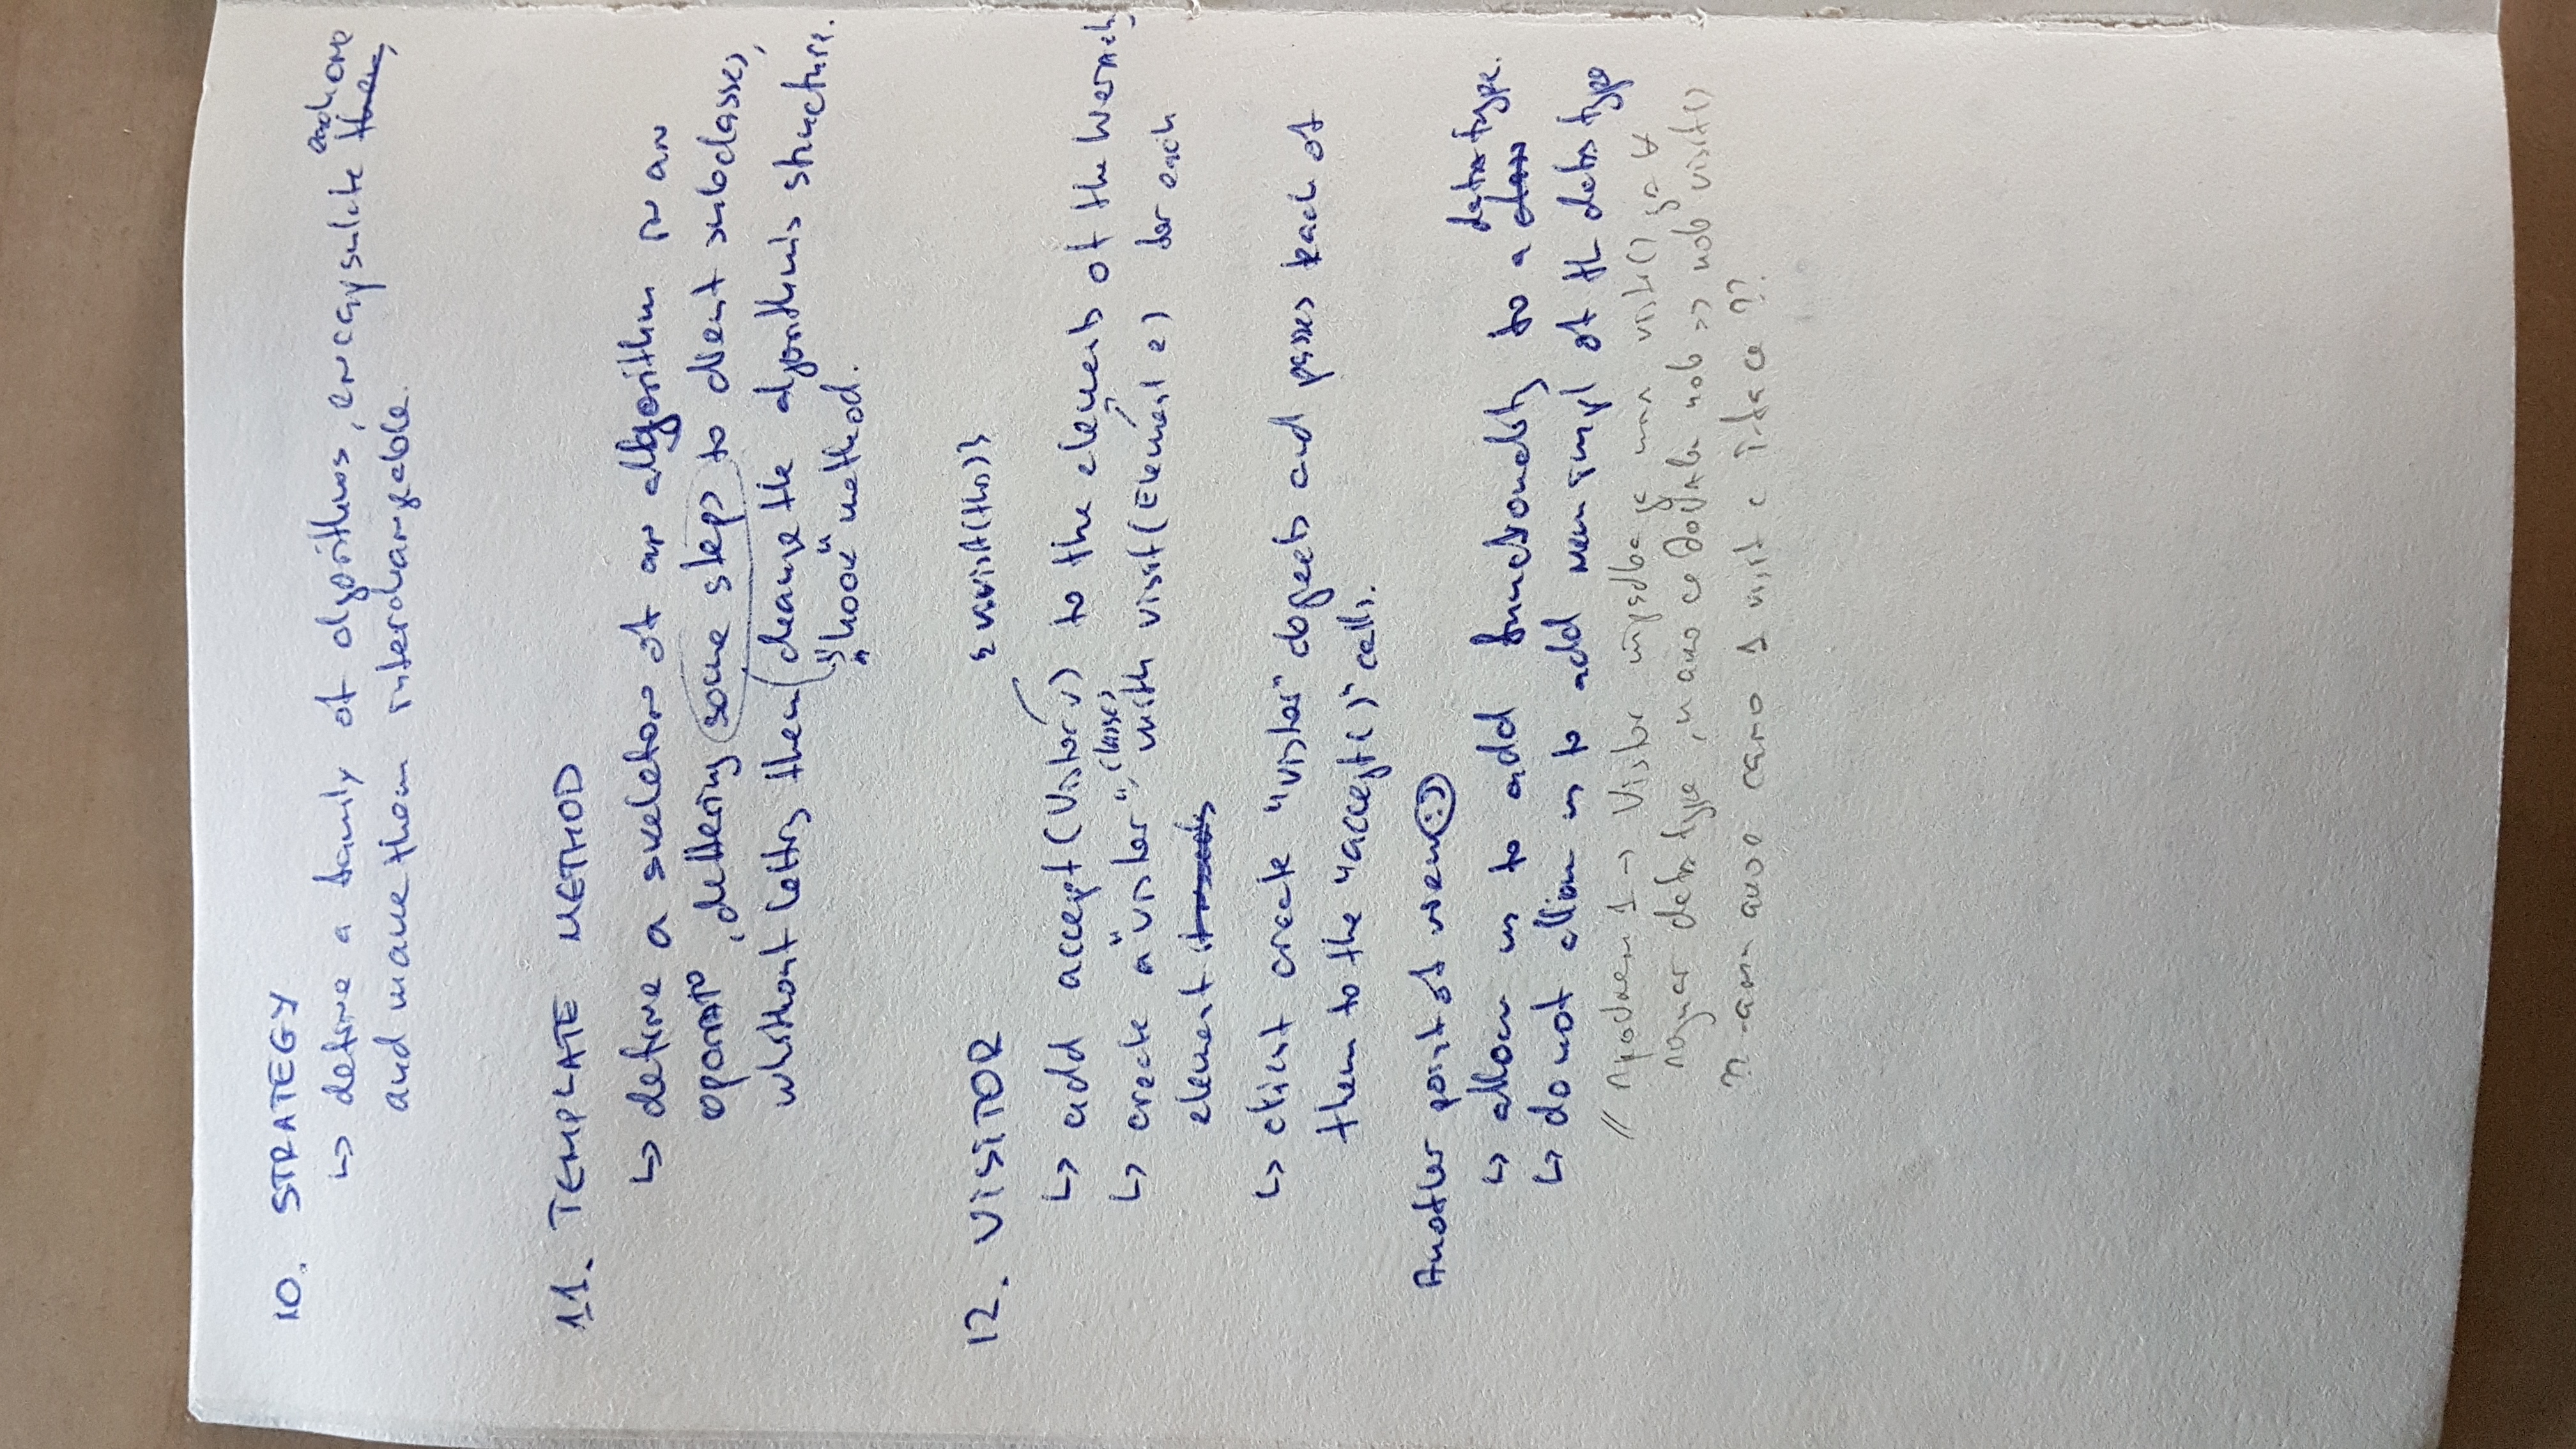 10. STRATEGY
↳ define a family of algorithms, encapsulate each one
and make them interchangeable.
11. TEMPLATE METHOD
↳ define a skeleton of an algorithm in an
deffering some steps to client subclasses,
whithout letting them change the algorithm's structure.
"hook" method.
12. VISITOR
{ v.visit(this) }
↳ add accept(Visitor v) to the elements of the hierarchy
↳ create a "visitor" classes with visit(Element e) for each
element
↳ client create "visitor" objects and passes each of
them to the "accept()" calls.
Another point of view :)
↳ allow us to add functionality to a data type.
↳ do not allow us to add new impl of the data type
// Проблем 1 → Visitor трябва да има visit() за ∀
data type, и ако се добави нов => нов visit()
ако е само 1 visit с